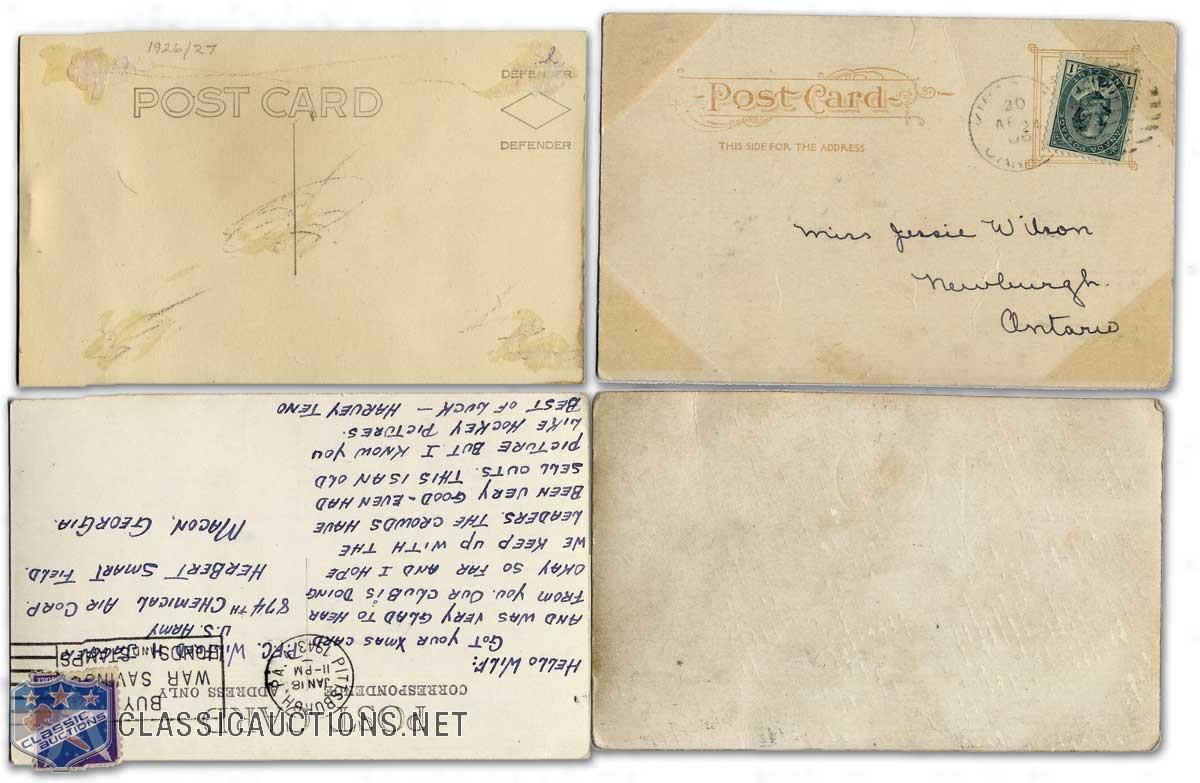 1926/27
POST CARD
DEFENDER
DEFENDER
Post Card
THIS SIDE FOR THE ADDRESS
20
Miss Jessie Wilson
Newburgh.
Ontario
HELLO WILF:
GOT YOUR XMAS CARD
AND WAS VERY GLAD TO HEAR
FROM YOU. OUR CLUB IS DOING
OKAY SO FAR AND I HOPE
WE KEEP UP WITH THE
LEADERS. THE CROWDS HAVE
BEEN VERY GOOD - EVEN HAD
SELL OUTS. THIS IS AN OLD
PICTURE BUT I KNOW YOU
LIKE HOCKEY PICTURES.
BEST OF LUCK — HARVEY TENO
POST CARD
CORRESPONDENCE
ADDRESS ONLY
PITTSBURGH, PA.
JAN 18
11-PM
1943
BUY
WAR SAVINGS
BONDS AND STAMPS
P.F.C. WILFRED H.
U.S. ARMY
874TH CHEMICAL AIR CORP.
HERBERT SMART FIELD.
MACON, GEORGIA.
CLASSIC
AUCTIONS
CLASSICAUCTIONS.NET